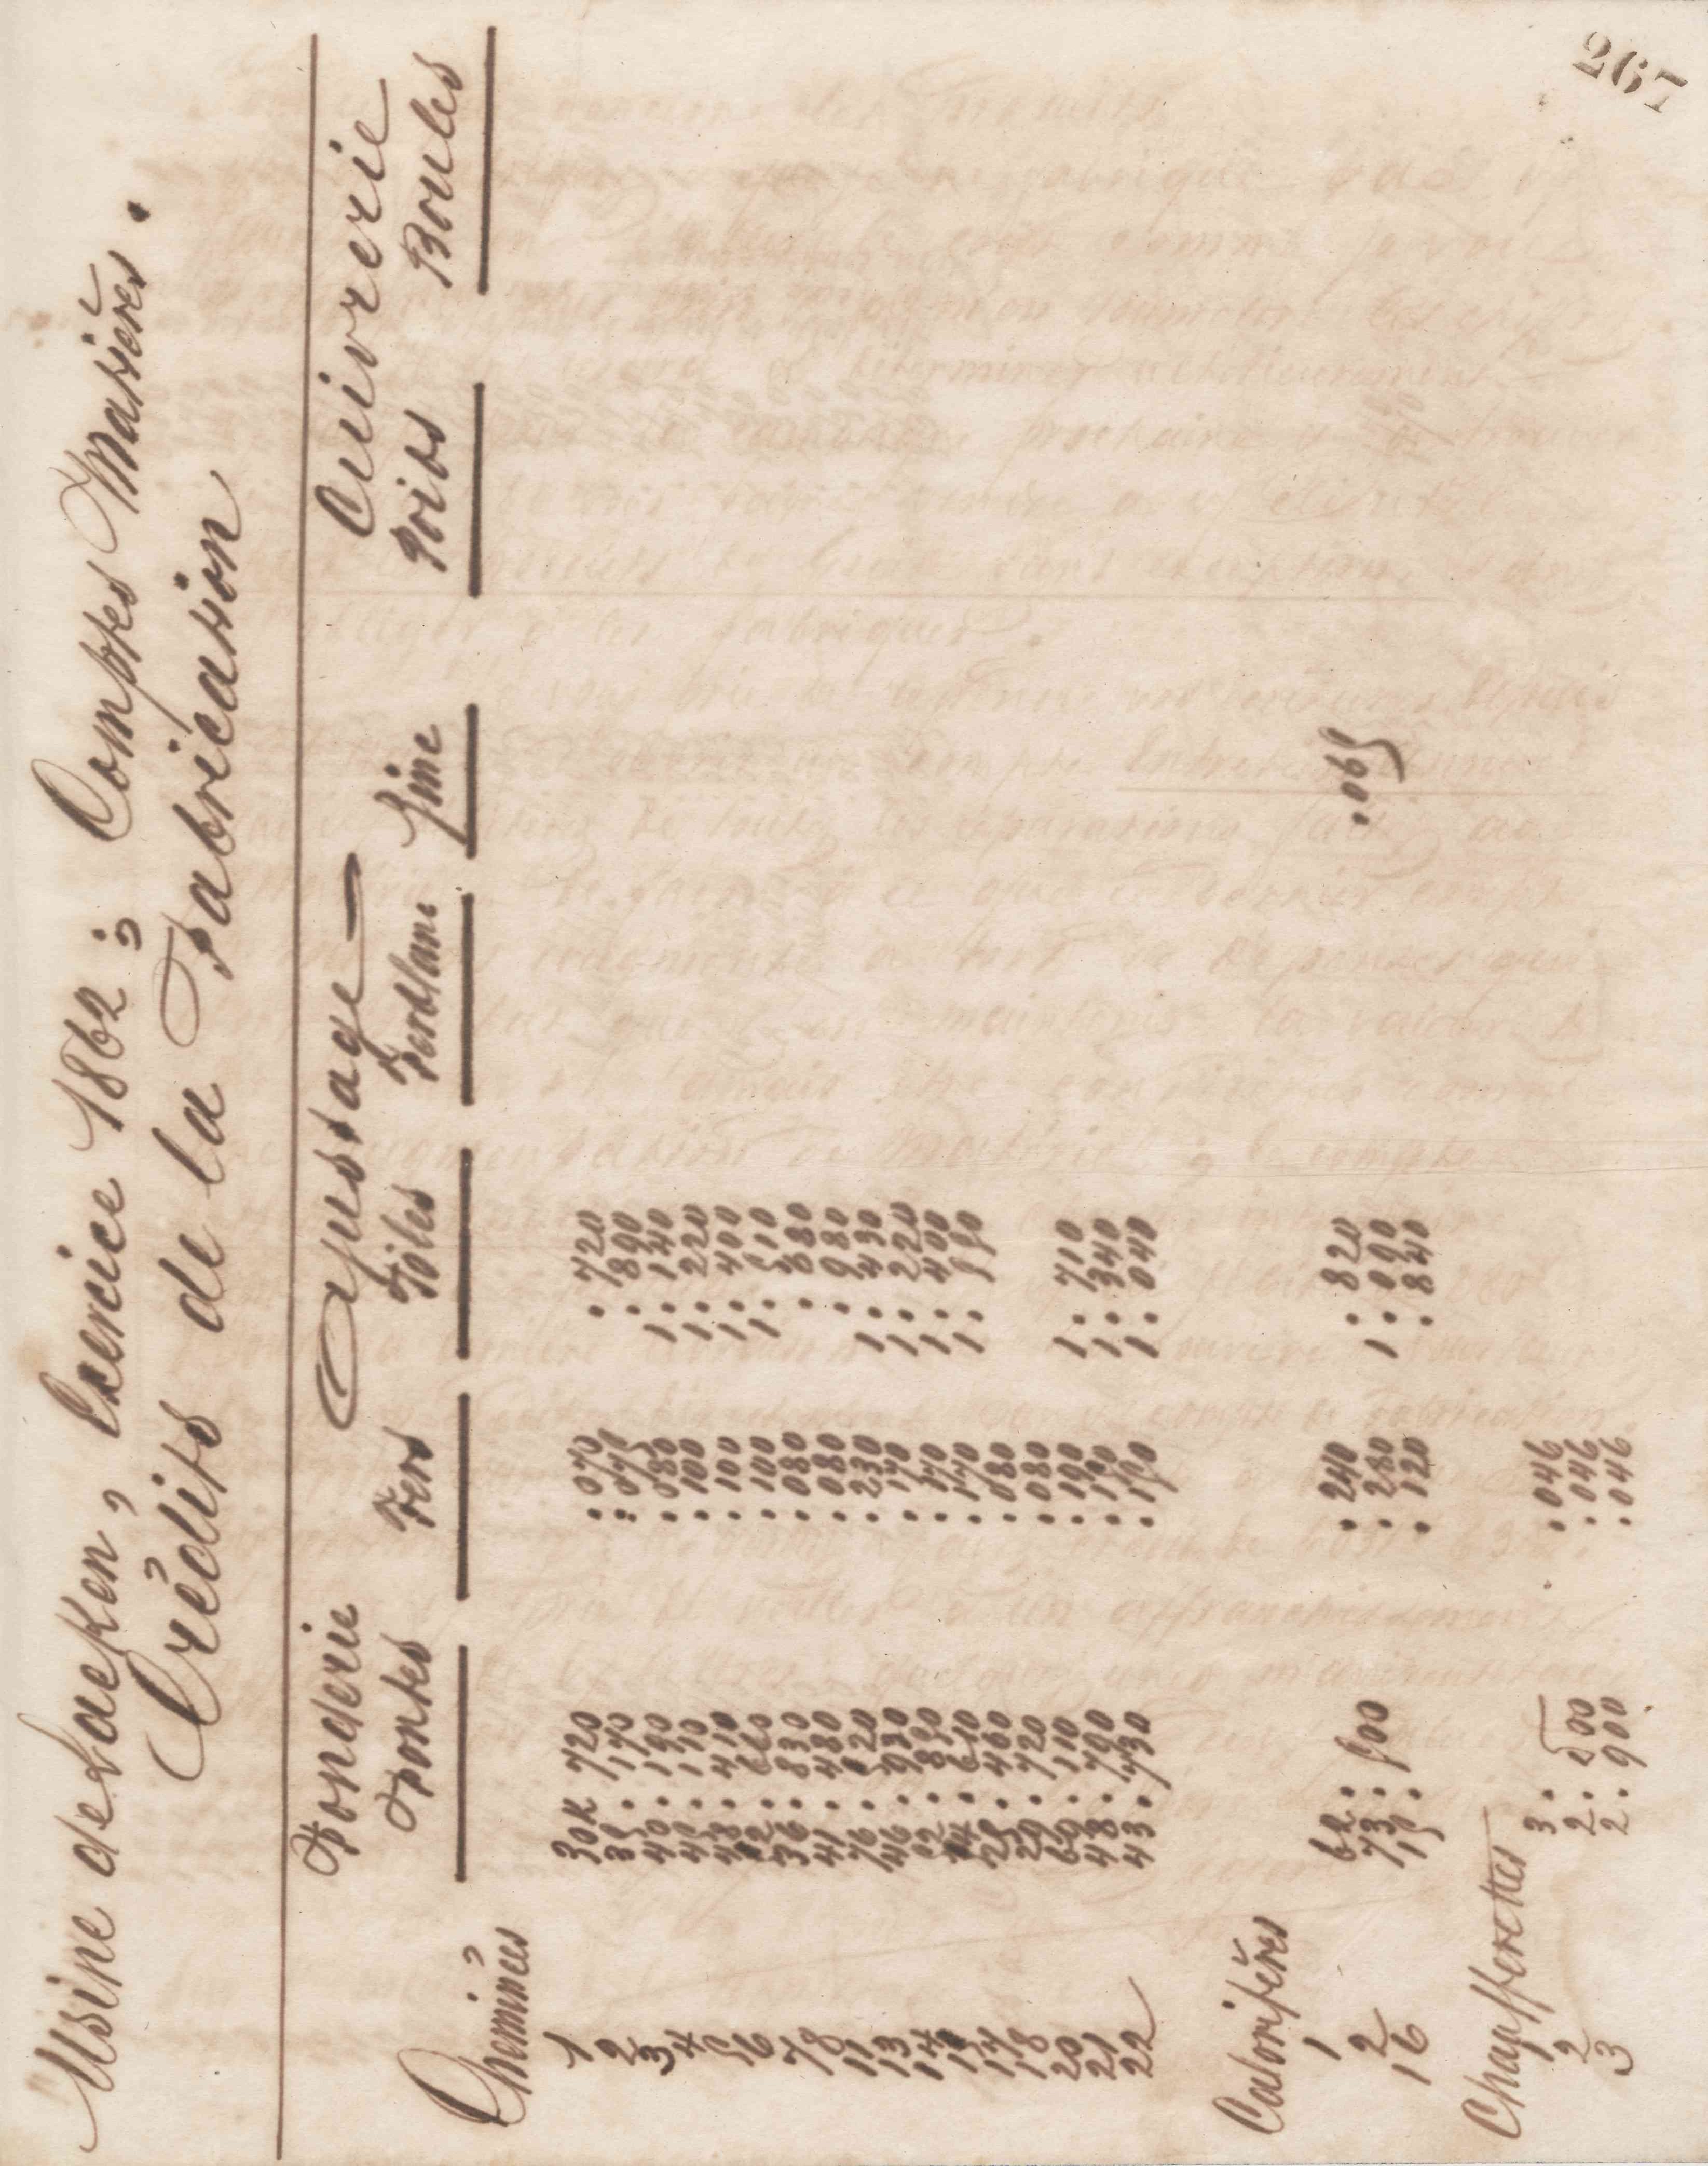 Usine de Laeken, Exercice 1862 : Comptes Matières.
Crédits de la Fabrication
Fonderie Ajustage Cuivrerie
Fontes Fers Tôles Fers blanc Zinc Poids Boules
Cheminées
1 30K 720 . 070 . 720
2 . 170 . 070 . 890
3 40 . 190 . 080 1 . 140
4 45 . 110 . 100 1 . 220
5 48 . 410 . 100 1 . 400
6 . 660 . 100 1 . 510
7 36 . 830 . 080 . 880
8 41 . 480 . 080 . 980
11 76 . . 230 1 . 430
13 46 . 930 . 170 1 . 220
14 52 . 890 . 170 1 . 400
15 . 610 . 170 1 . 590
17 25 . 460 . 080
18 29 . 720 . 080
20 69 . 110 . 190 1 . 710
21 48 . 790 . 190 1 . 340
22 43 . 730 . 190 1 . 040
Calorifères
1 62 . . 240 . 820 . 065
2 73 . . 280 1 . 090
16 15 . . 120 . 840
Chaufferettes
1 3 . . 046
2 2 . 500 . 046
3 2 . 900 . 046
267